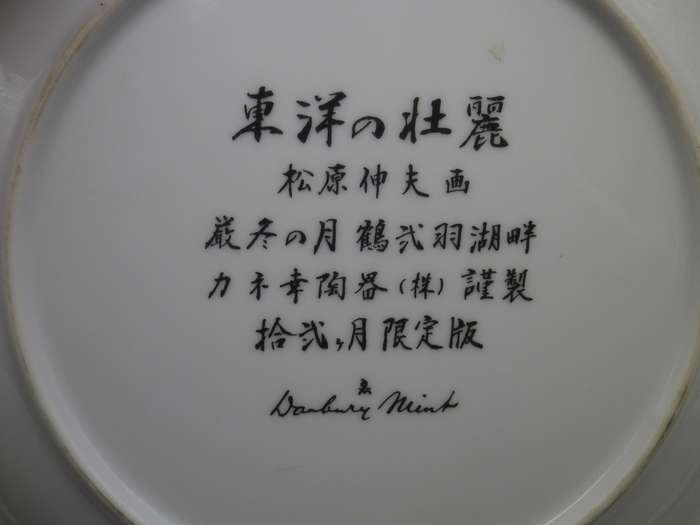 東洋の壮麗
松原伸夫画
厳冬の月鶴弐羽湖畔
カネ幸陶器(株)謹製
拾弐ヶ月限定版
Danbury Mint